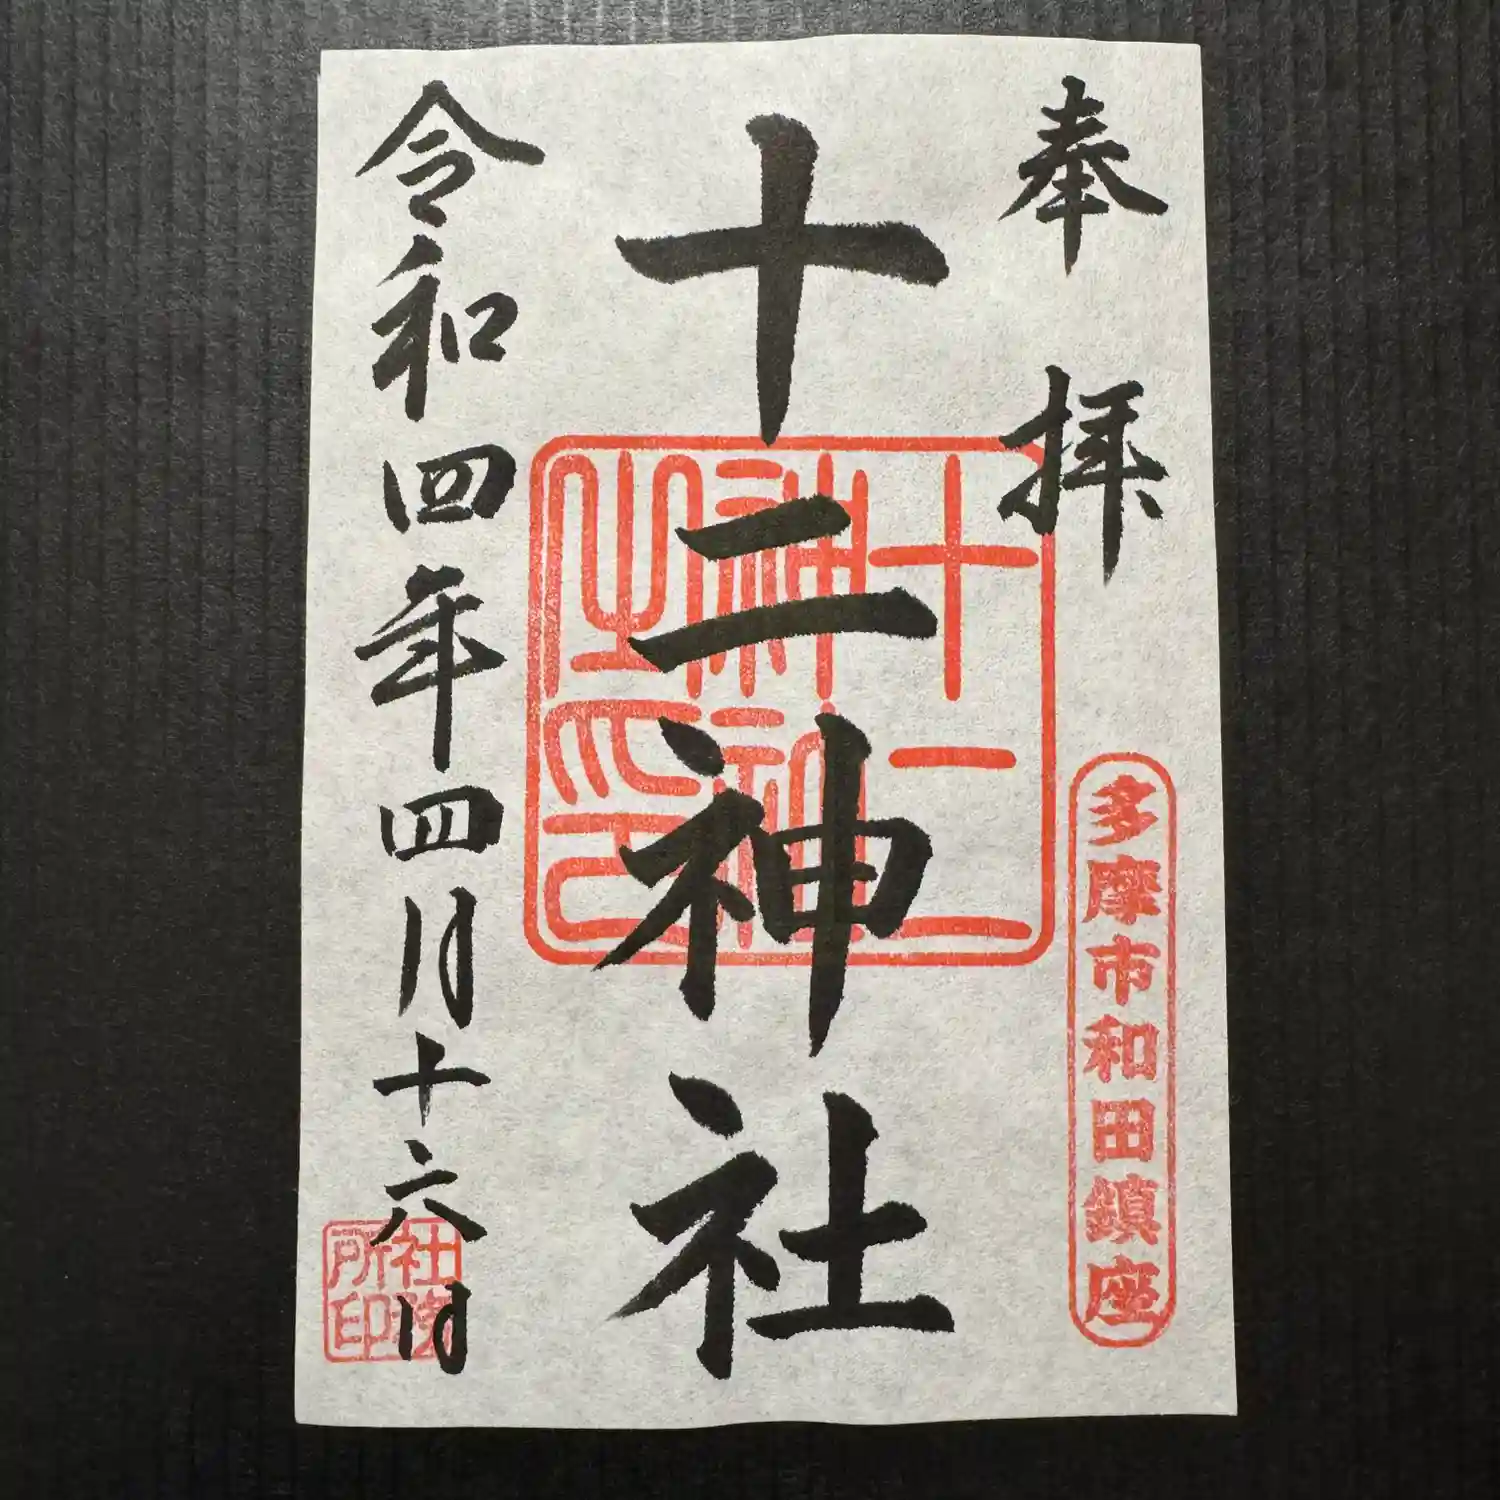 奉拝
多摩市和田鎮座
十二神社
十二
神社
之印
令和四年四月十六日
社務
所印